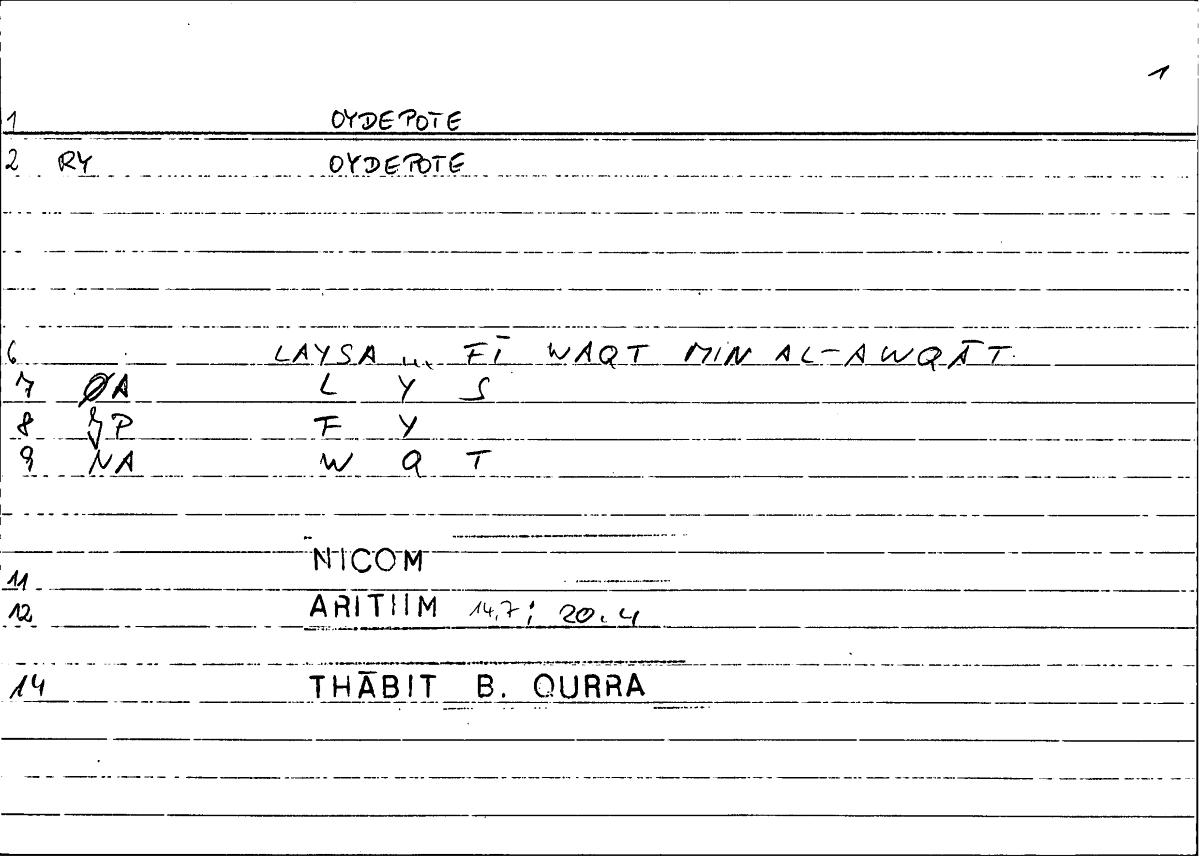 1
1 OYDEPOTE
2 RY OYDEPOTE
6 LAYSA ... FĪ WAQT MIN AL-AWQĀT.
7 ØA L Y S
8 P F Y
9 NA W Q T
NICOM
11
12 ARITHM 14,7; 20.4
14 THĀBIT B. QURRA